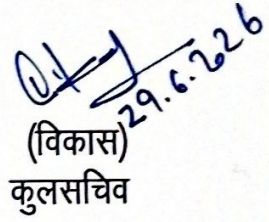 29.6.2026
(विकास)
कुलसचिव